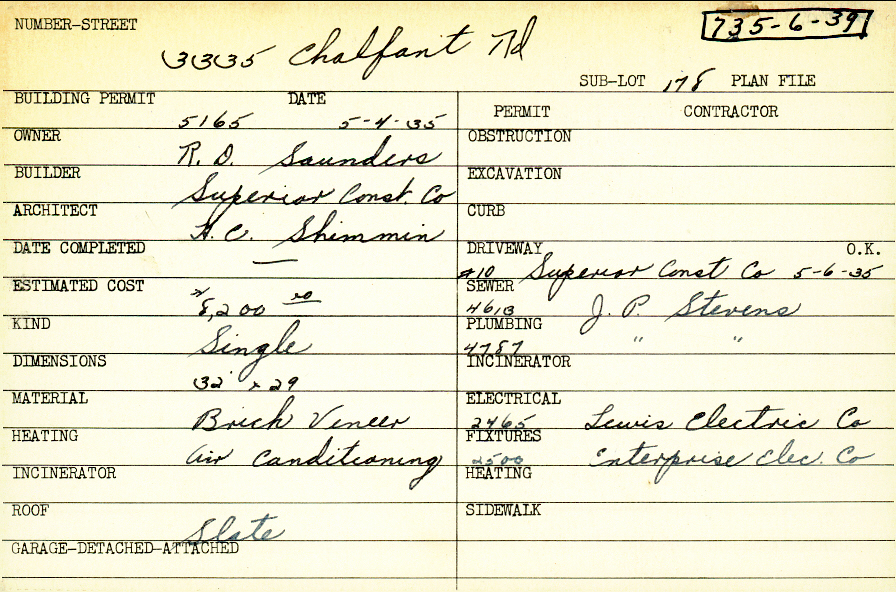 NUMBER-STREET
735-6-39
3335 Chalfant Rd
SUB-LOT 178 PLAN FILE
BUILDING PERMIT DATE
5165 5-4-35
OWNER
R. D. Saunders
BUILDER
Superior Const. Co
ARCHITECT
H. C. Shimmin
DATE COMPLETED
—
ESTIMATED COST
$8,200 00
KIND
Single
DIMENSIONS
32' x 29
MATERIAL
Brick Veneer
HEATING
Air Conditioning
INCINERATOR
ROOF
Slate
GARAGE-DETACHED-ATTACHED
PERMIT CONTRACTOR
OBSTRUCTION
EXCAVATION
CURB
DRIVEWAY O.K.
#10 Superior Const Co 5-6-35
SEWER
4613 J. P. Stevens
PLUMBING
4787 " "
INCINERATOR
ELECTRICAL
2465 Lewis Electric Co
FIXTURES
2500 Enterprise Elec. Co
HEATING
SIDEWALK